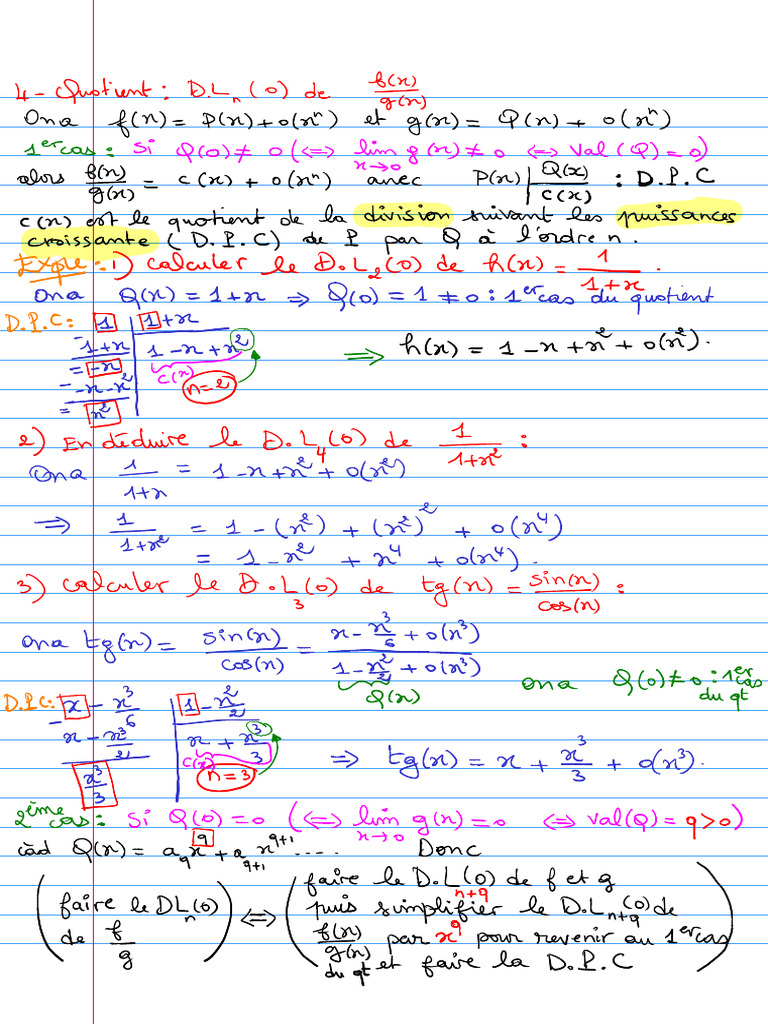 4- Quotient : D.Lₙ(0) de f(x)/g(x)
On a f(x) = P(x) + o(xⁿ) et g(x) = Q(x) + o(xⁿ)
1er cas : Si Q(0) ≠ 0 (⇔ lim_{x→0} g(x) ≠ 0 ⇔ Val(Q) = 0)
alors f(x)/g(x) = c(x) + o(xⁿ) avec P(x) | Q(x) / c(x) : D.P.C
c(x) est le quotient de la division suivant les puissances
croissante (D.P.C) de P par Q à l'ordre n.
Exple : 1) calculer le D.L₂(0) de h(x) = 1/(1+x).
On a Q(x) = 1+x ⇒ Q(0) = 1 ≠ 0 : 1er cas du quotient
D.P.C : 1 | 1+x
- 1+x | 1 - x + x²
= -x c(x) n=2
- -x-x²
= x²
⇒ h(x) = 1 - x + x² + o(x²).
2) En déduire le D.L₄(0) de 1/(1+x²) :
On a 1/(1+x) = 1 - x + x² + o(x²)
⇒ 1/(1+x²) = 1 - (x²) + (x²)² + o(x⁴)
= 1 - x² + x⁴ + o(x⁴).
3) calculer le D.L₃(0) de tg(x) = sin(x)/cos(x) :
On a tg(x) = sin(x)/cos(x) = (x - x³/6 + o(x³))/(1 - x²/2 + o(x³))
Q(x) On a Q(0) ≠ 0 : 1er cas du qt
D.P.C : x - x³/6 | 1 - x²/2
- x - x³/2 | x + x³/3
c(x) n=3
x³/3
⇒ tg(x) = x + x³/3 + o(x³).
2ème cas : Si Q(0) = 0 (⇔ lim_{x→0} g(x) = 0 ⇔ val(Q) = q > 0)
càd Q(x) = a_q x^q + a_{q+1} x^{q+1} .... Donc
(faire le DLₙ(0) de f/g) ⇔ (faire le D.L_{n+q}(0) de f et g
puis simplifier le D.L_{n+q}(0) de
f(x)/g(x) par x^q pour revenir au 1er cas
du qt et faire la D.P.C)